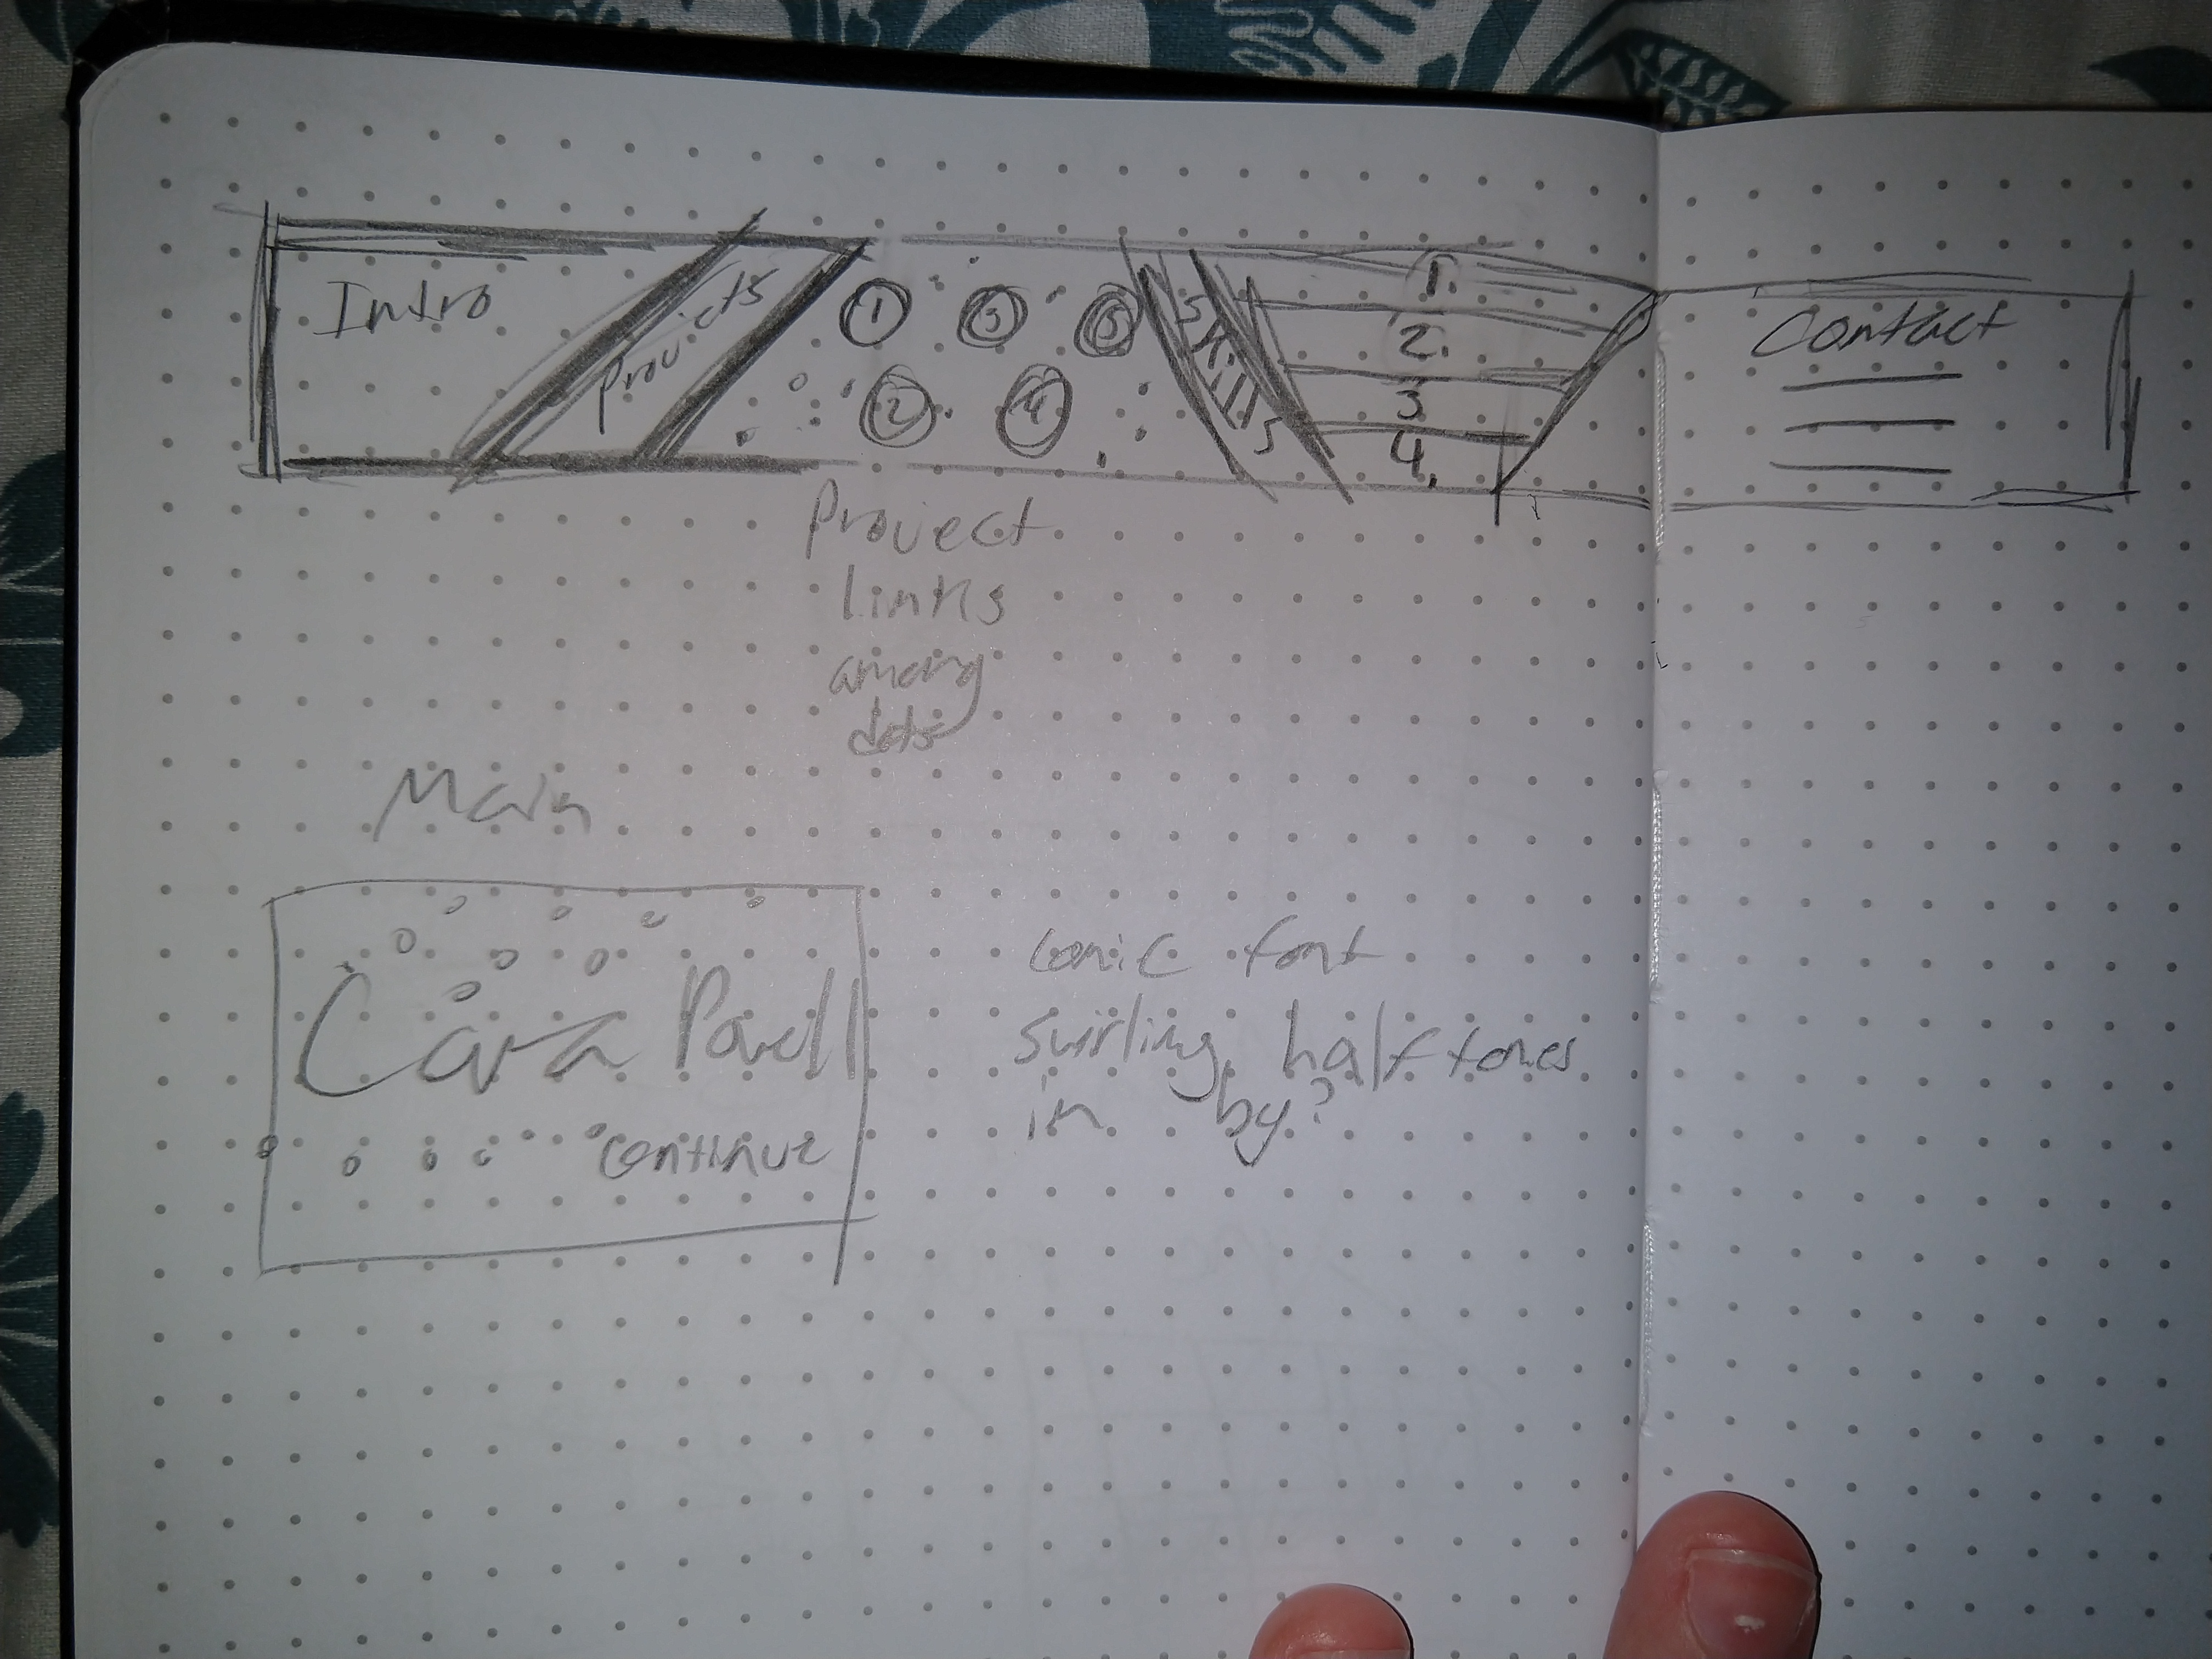 Intro
Projects
1
3
5
2
4
Skills
1.
2.
3
4.
Contact
Project
links
among
dots
Main
Cara Powell
continue
comic font
swirling halftones
in by?